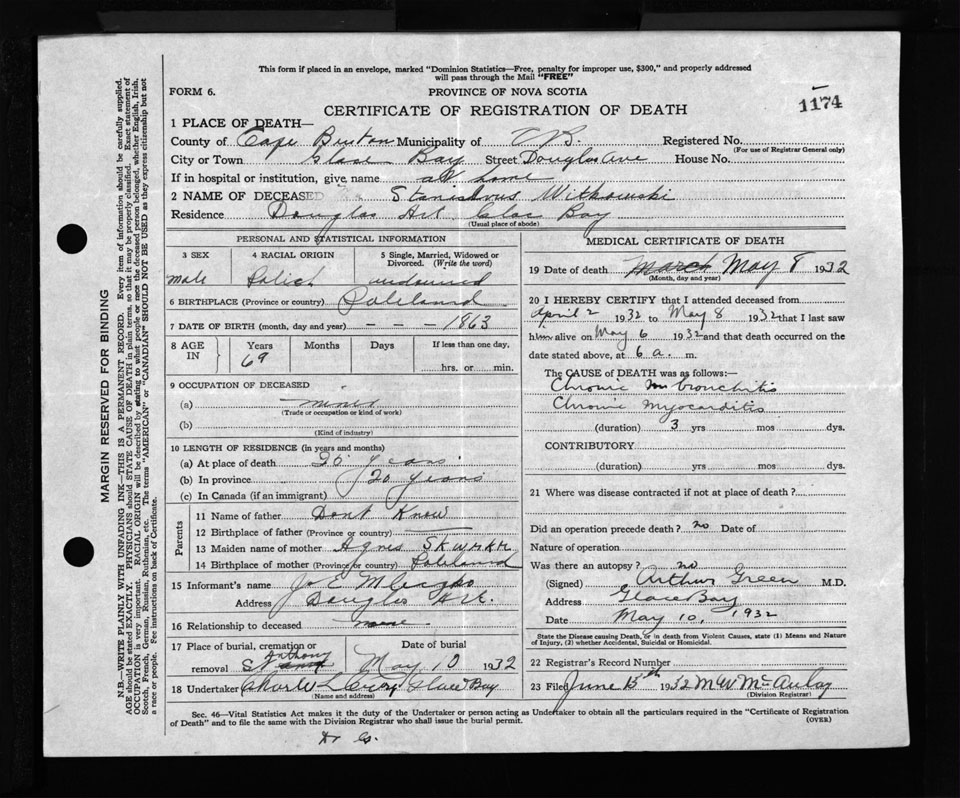 This form if placed in an envelope, marked "Dominion Statistics—Free, penalty for improper use, $300," and properly addressed
will pass through the Mail "FREE"
FORM 6.
PROVINCE OF NOVA SCOTIA
1174
CERTIFICATE OF REGISTRATION OF DEATH
1 PLACE OF DEATH—
County of Cape Breton Municipality of C B. Registered No.
(For use of Registrar General only)
City or Town Glace Bay Street Douglas Ave House No.
If in hospital or institution, give name at home
2 NAME OF DECEASED Witkowski
Residence Douglas Bay
(Usual place of abode)
PERSONAL AND STATISTICAL INFORMATION
3 SEX 4 RACIAL ORIGIN 5 Single, Married, Widowed or Divorced. (Write the word)
male
6 BIRTHPLACE (Province or country)
7 DATE OF BIRTH (month, day and year) – – – 1863
8 AGE IN Years Months Days If less than one day,
69 hrs. or min.
9 OCCUPATION OF DECEASED
(a) miner
(Trade or occupation or kind of work)
(b)
(Kind of industry)
10 LENGTH OF RESIDENCE (in years and months)
(a) At place of death 20 years
(b) In province 20 years
(c) In Canada (if an immigrant)
Parents
11 Name of father Dont Know
12 Birthplace of father (Province or country)
13 Maiden name of mother Agnes
14 Birthplace of mother (Province or country)
15 Informant's name
Address Douglas
16 Relationship to deceased
17 Place of burial, cremation or removal Date of burial
St Anthony May 10 1932
18 Undertaker Glace Bay
(Name and address)
MEDICAL CERTIFICATE OF DEATH
19 Date of death May 8 1932
(Month, day and year)
20 I HEREBY CERTIFY that I attended deceased from
April 2 1932 to May 8 1932 that I last saw
him alive on May 6 1932 and that death occurred on the
date stated above, at 6 a. m.
The CAUSE of DEATH was as follows:—
Chronic bronchitis
Chronic Myocarditis
(duration) 3 yrs mos dys.
CONTRIBUTORY
(duration) yrs mos dys.
21 Where was disease contracted if not at place of death?
Did an operation precede death? no Date of
Nature of operation
Was there an autopsy? no
(Signed) Arthur Green M.D.
Address Glace Bay
Date May 10, 1932
State the Disease causing Death, or in death from Violent Causes, state (1) Means and Nature
of Injury, (2) whether Accidental, Suicidal or Homicidal.
22 Registrar's Record Number
23 Filed June 15th 1932 M W McAulay
(Division Registrar)
Sec. 46—Vital Statistics Act makes it the duty of the Undertaker or person acting as Undertaker to obtain all the particulars required in the "Certificate of Registration
of Death" and to file the same with the Division Registrar who shall issue the burial permit.
(OVER)
MARGIN RESERVED FOR BINDING
N.B.—WRITE PLAINLY WITH UNFADING INK—THIS IS A PERMANENT RECORD. Every item of information should be carefully supplied.
AGE should be stated EXACTLY. PHYSICIANS should STATE CAUSE OF DEATH in plain terms, so that it may be properly classified. Exact statement of
OCCUPATION is very important. RACIAL ORIGIN will be described by stating to what people or race the deceased person belonged, whether English, Irish,
Scotch, French, German, Russian, Ruthenian, etc. The terms "AMERICAN" or "CANADIAN" SHOULD NOT BE USED as they express citizenship but not
a race or people. See instructions on back of Certificate.